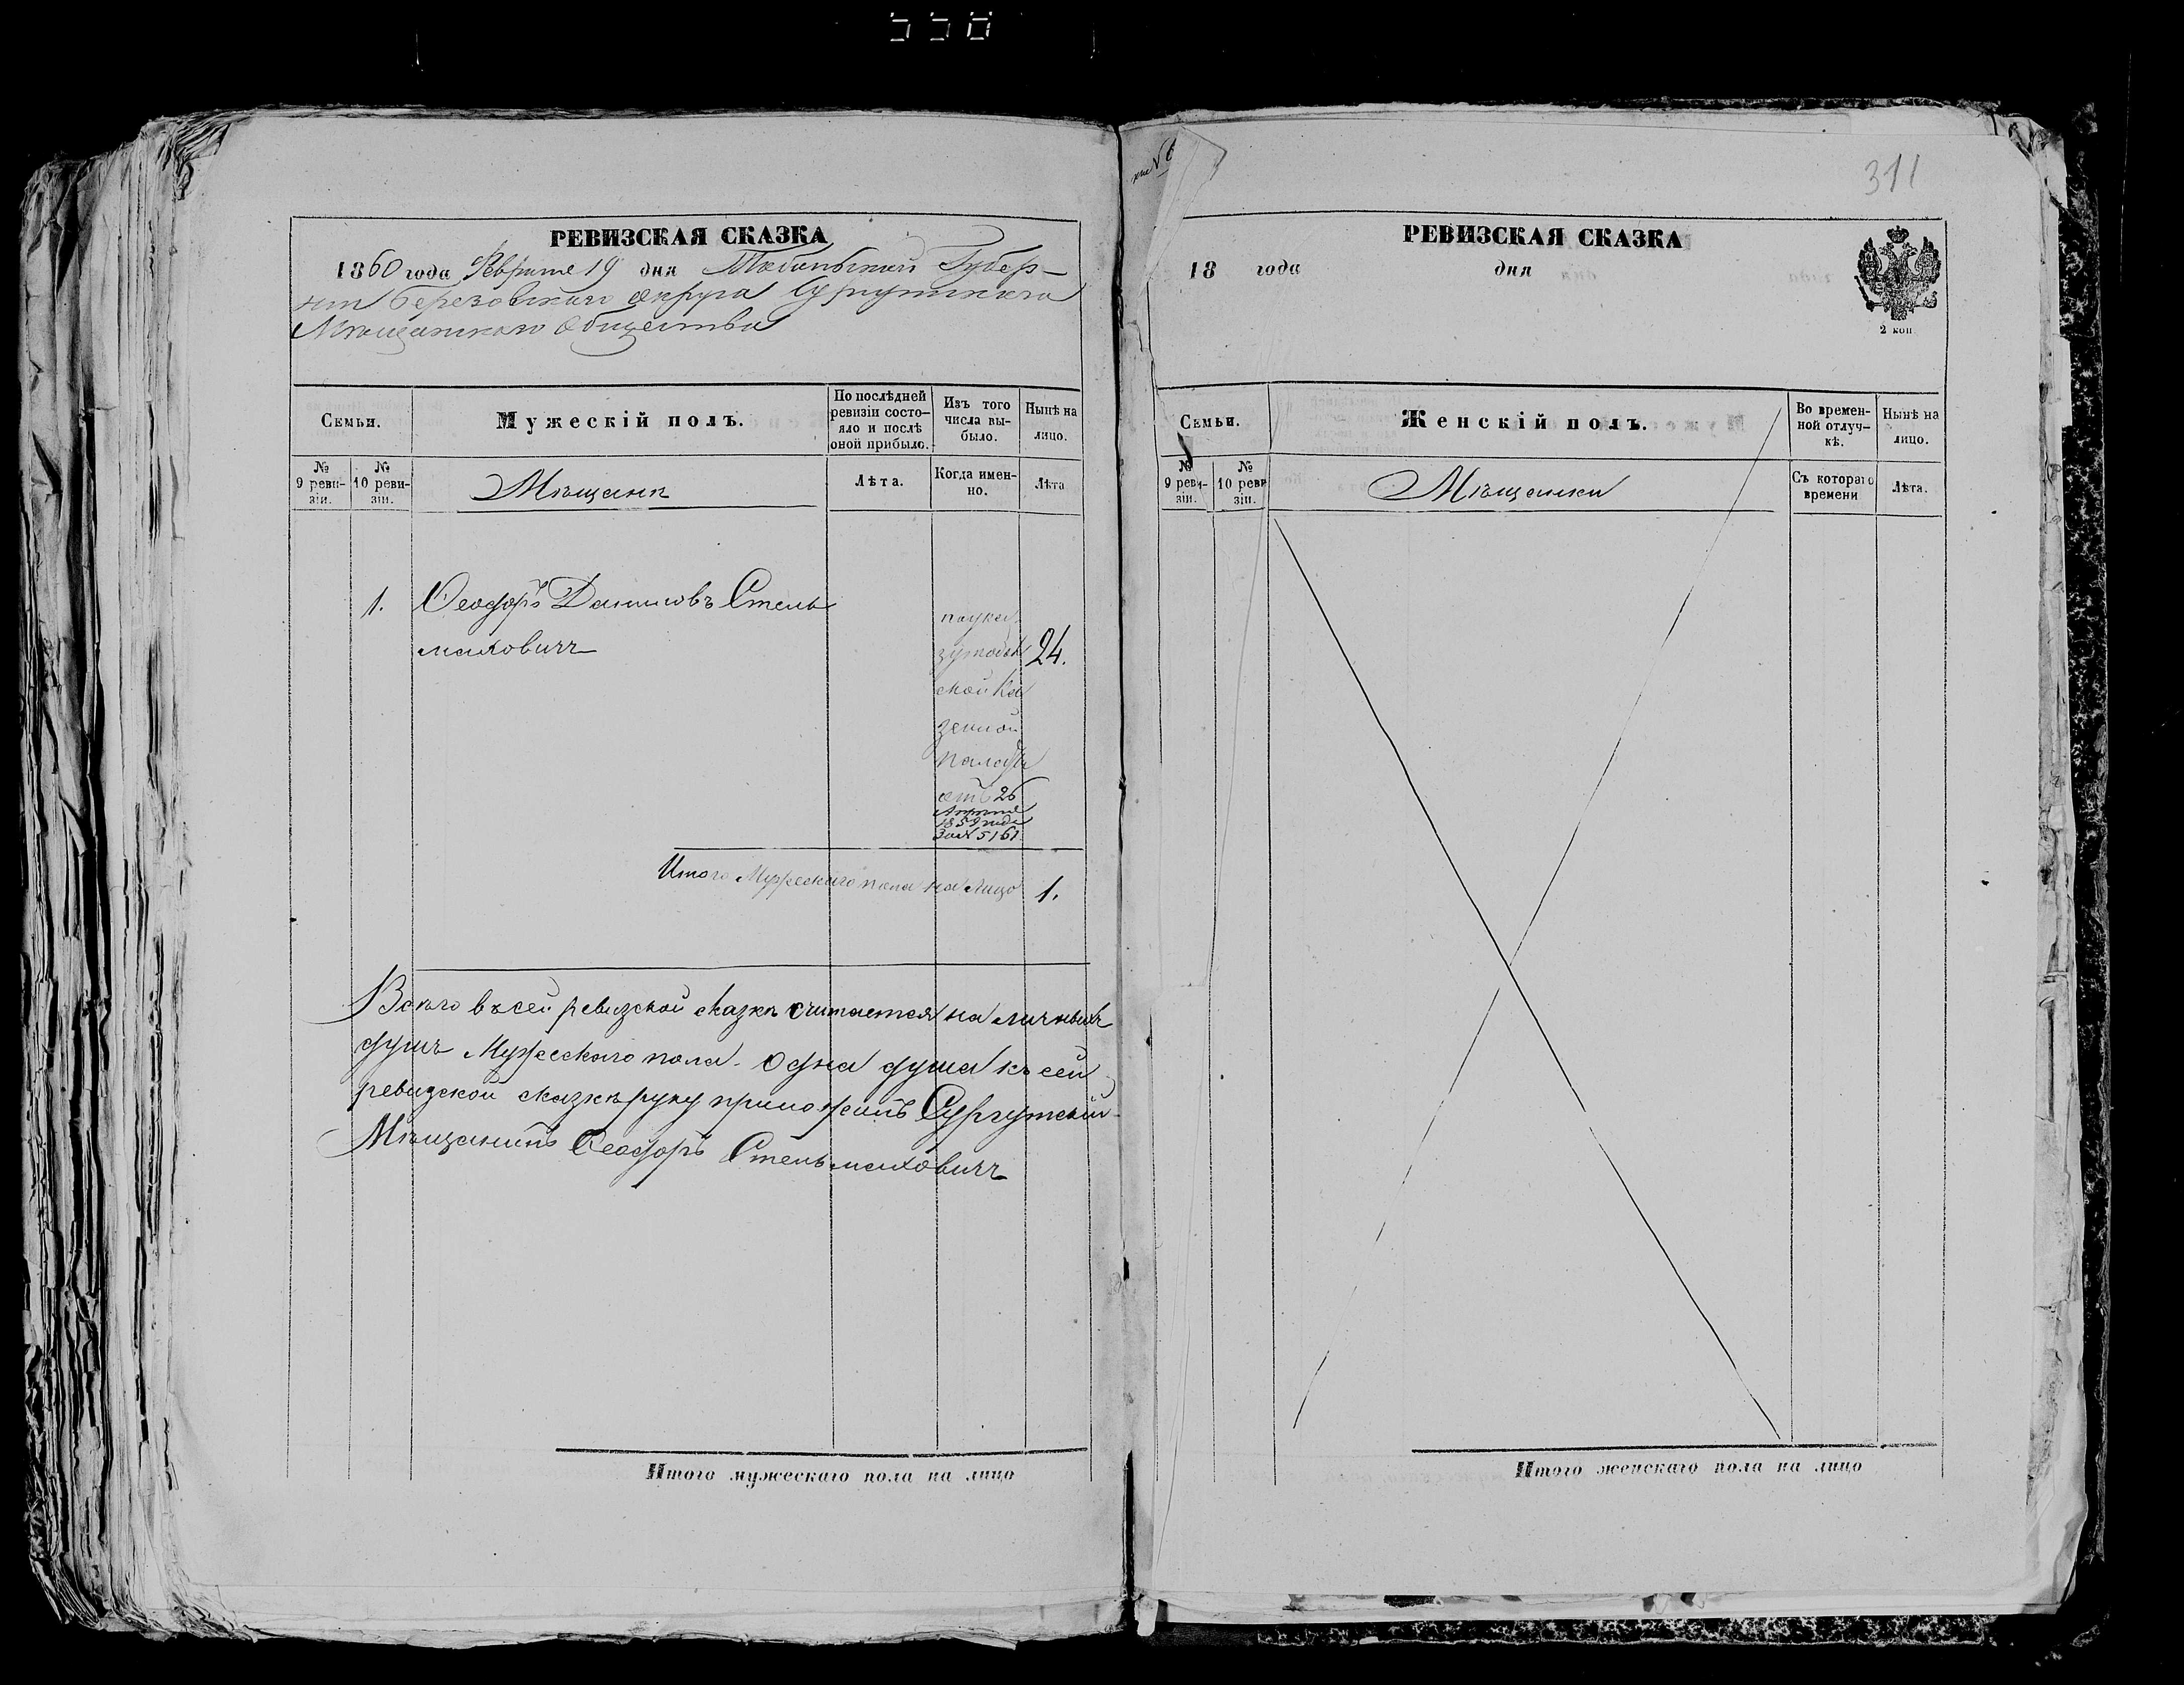 558
РЕВИЗСКАЯ СКАЗКА
1860 года Февраля 19 дня Тобольской Губер-
нiи Березовскаго округа Сургутскаго
Мѣщанскаго Общества
Семьи.
Мужескій полъ.
По послѣдней
ревизіи состо-
яло и послѣ
оной прибыло.
Изъ того
числа вы-
было.
Нынѣ на
лицо.
№
9 реви-
зіи.
№
10 реви-
зіи.
Мѣщане
Лѣта.
Когда имен-
но.
Лѣта
1. Ѳеодоръ Даниловъ Стель
маховичь
по ука
зу Тоболь
ской Ка
зенной
палаты
отъ 26
Апреля
1859 года
за № 5161
24.
Итого Мужескаго пола на лицо 1.
Всего въ сей ревизской сказкѣ считается на личныхъ
душъ Мужескаго пола. одна душа къ сей
ревизской сказкѣ руку приложилъ Сургутскій
Мѣщанинъ Ѳеодоръ Стельмаховичь
Итого мужескаго пола на лицо
311
РЕВИЗСКАЯ СКАЗКА
18 года дня
2 коп
Семьи.
Женскій полъ.
Во времен-
ной отлуч-
кѣ.
Нынѣ на
лицо.
№
9 реви-
зіи.
№
10 реви
зіи.
Мѣщанки
Съ котораго
времени
Лѣта.
Итого женскаго пола на лицо